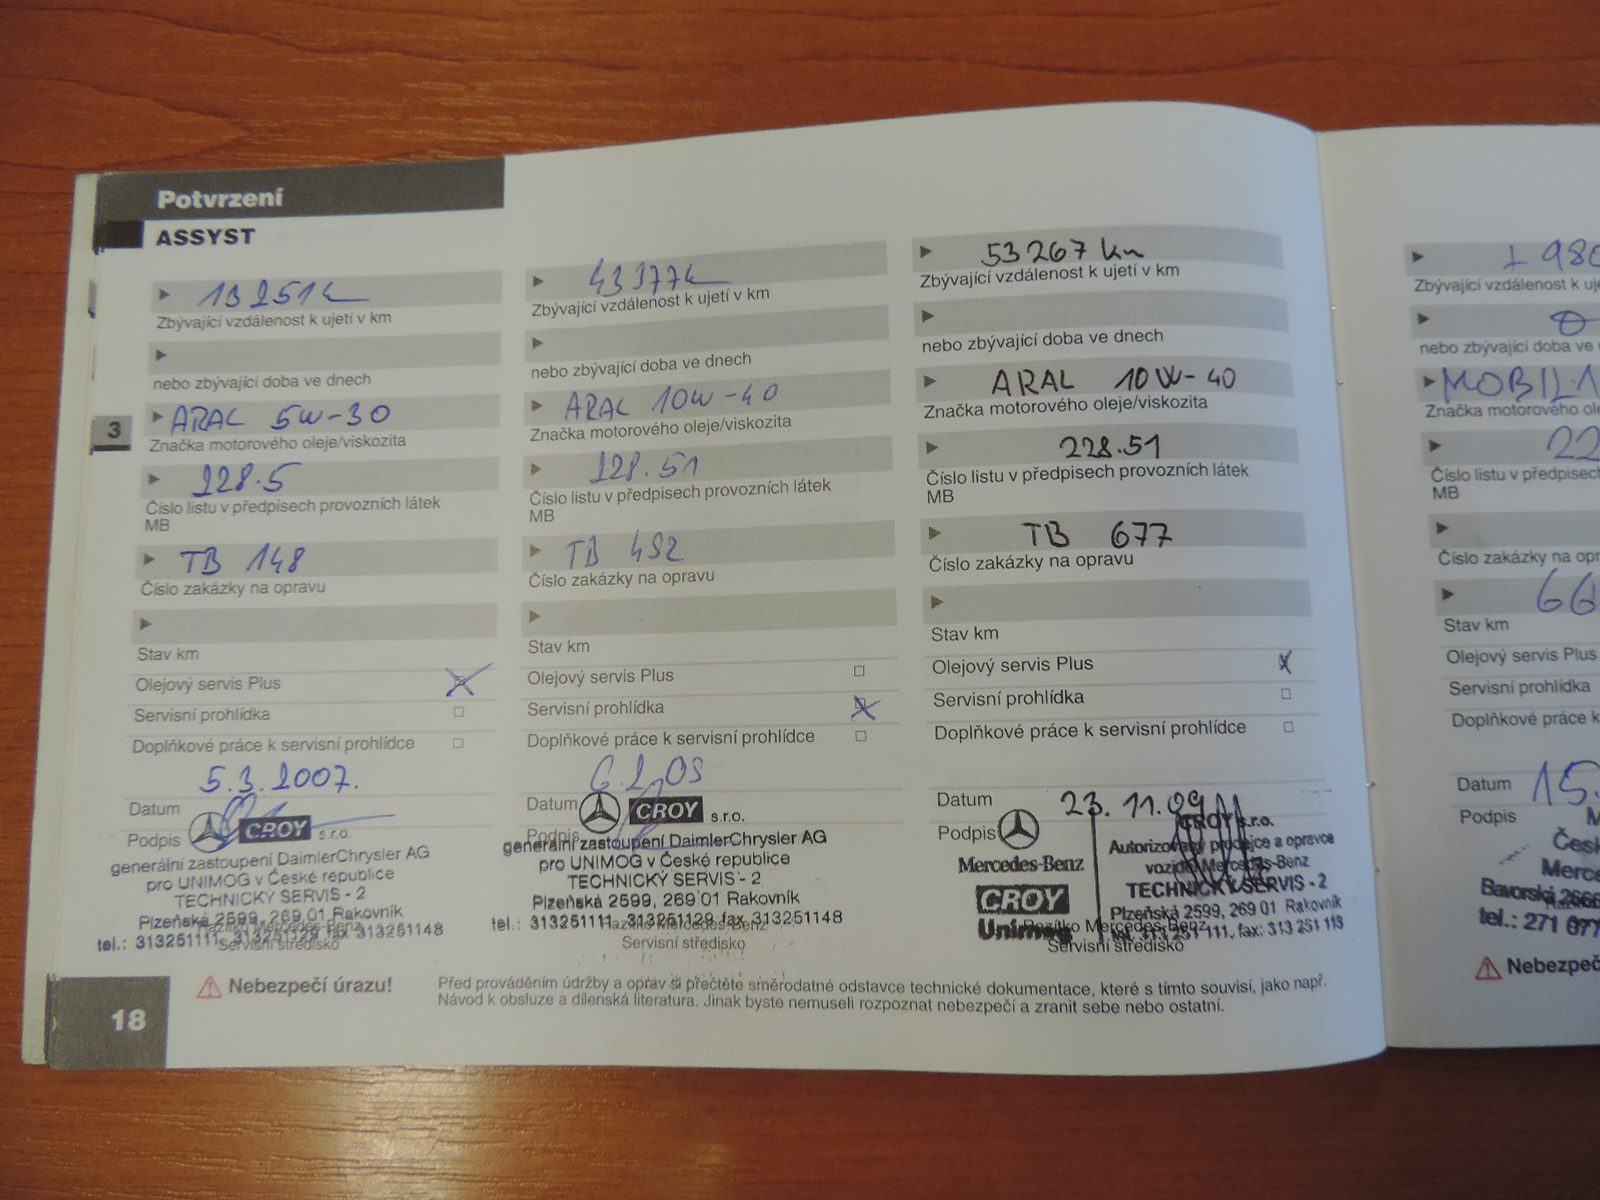 Potvrzení
ASSYST
3
13 251 k
Zbývající vzdálenost k ujetí v km
nebo zbývající doba ve dnech
ARAL 5W-30
Značka motorového oleje/viskozita
228.5
Číslo listu v předpisech provozních látek
MB
TB 148
Číslo zakázky na opravu
Stav km
Olejový servis Plus
Servisní prohlídka
Doplňkové práce k servisní prohlídce
5.3.2007.
Datum
Podpis
CROY s.r.o.
generální zastoupení DaimlerChrysler AG
pro UNIMOG v České republice
TECHNICKÝ SERVIS - 2
Plzeňská 2599, 269 01 Rakovník
tel.: 313251111, 313251129 fax 313251148
Razítko Mercedes-Benz
Servisní středisko
43 377 k
Zbývající vzdálenost k ujetí v km
nebo zbývající doba ve dnech
ARAL 10W-40
Značka motorového oleje/viskozita
228.51
Číslo listu v předpisech provozních látek
MB
TB 492
Číslo zakázky na opravu
Stav km
Olejový servis Plus
Servisní prohlídka
Doplňkové práce k servisní prohlídce
Datum
Podpis
CROY s.r.o.
generální zastoupení DaimlerChrysler AG
pro UNIMOG v České republice
TECHNICKÝ SERVIS - 2
Plzeňská 2599, 269 01 Rakovník
tel.: 313251111, 313251129 fax 313251148
Razítko Mercedes-Benz
Servisní středisko
53 267 km
Zbývající vzdálenost k ujetí v km
nebo zbývající doba ve dnech
ARAL 10W-40
Značka motorového oleje/viskozita
228.51
Číslo listu v předpisech provozních látek
MB
TB 677
Číslo zakázky na opravu
Stav km
Olejový servis Plus
Servisní prohlídka
Doplňkové práce k servisní prohlídce
Datum
23.11.09
Podpis
Mercedes-Benz
CROY
Unimog
CROY s.r.o.
Autorizovaný prodejce a opravce
vozidel Mercedes-Benz
TECHNICKÝ SERVIS - 2
Plzeňská 2599, 269 01 Rakovník
tel. 313 251 111, fax: 313 251 113
Razítko Mercedes-Benz
Servisní středisko
Zbývající vzdálenost k uje
nebo zbývající doba ve
MOBIL 1
Značka motorového ole
22
Číslo listu v předpisech
MB
Číslo zakázky na opr
66
Stav km
Olejový servis Plus
Servisní prohlídka
Doplňkové práce k
Datum
15.
Podpis
Česk
Merce
Bavorská 2666
tel.: 271 077
Nebezpeč
Nebezpečí úrazu!
Před prováděním údržby a oprav si přečtěte směrodatné odstavce technické dokumentace, které s tímto souvisí, jako např.
Návod k obsluze a dílenská literatura. Jinak byste nemuseli rozpoznat nebezpečí a zranit sebe nebo ostatní.
18